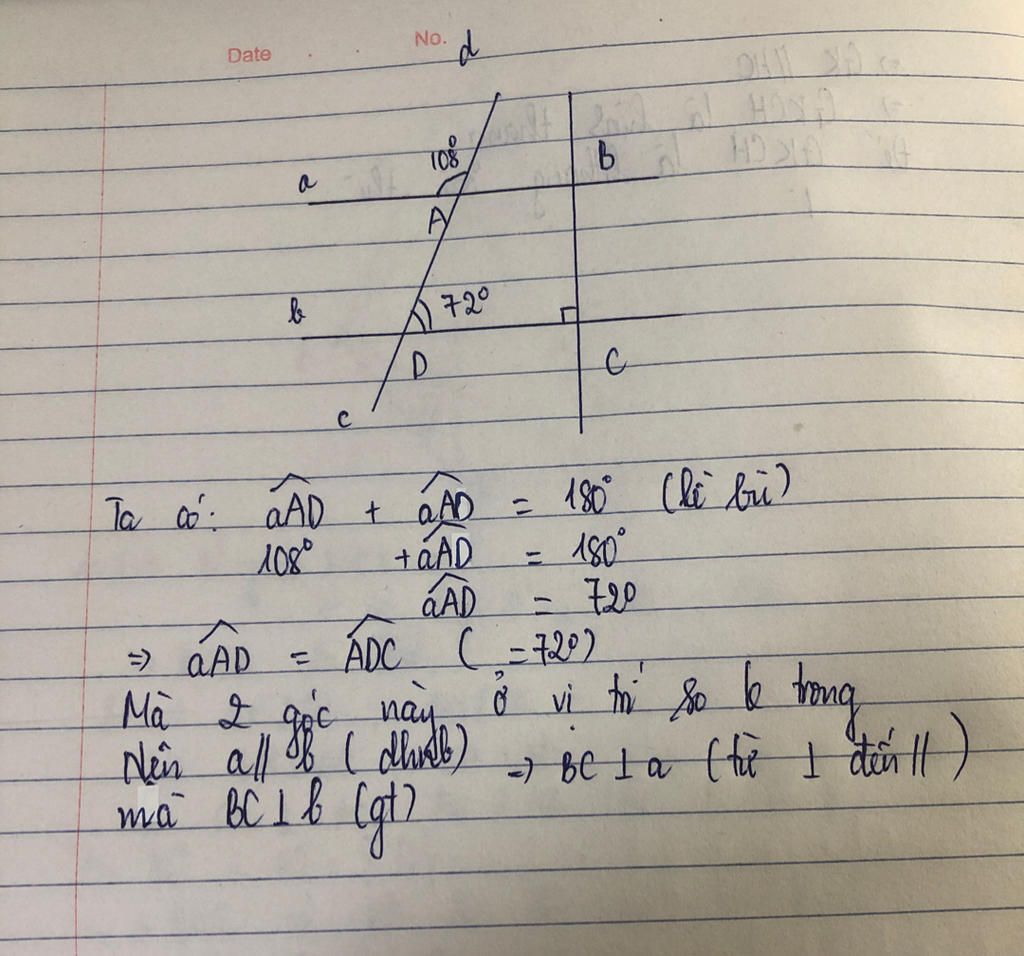 Date . . No.
d
108°
a
A
B
b
72°
D
C
c
Ta có: aAD + aAD = 180° (kề bù)
108° + aAD = 180°
aAD = 72°
=> aAD = ADC ( = 72°)
Mà 2 góc này ở vị trí so le trong
Nên a // b (dhnb) => BC ⊥ a (từ ⊥ đến //)
mà BC ⊥ b (gt)